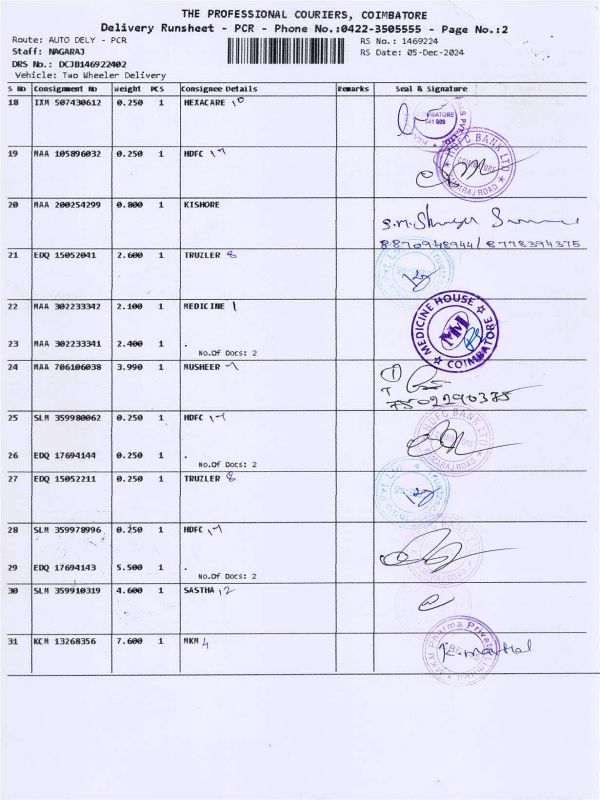 THE PROFESSIONAL COURIERS, COIMBATORE
Delivery Runsheet - PCR - Phone No.:0422-3505555 - Page No.:2
Route: AUTO DELY - PCR RS No.: 1469224
Staff: NAGARAJ RS Date: 05-Dec-2024
DRS No.: DCJB146922402
Vehicle: Two Wheeler Delivery
S No Consignment No Weight PCS Consignee Details Remarks Seal & Signature
18 IXM 507430612 0.250 1 HEXACARE 10
19 MAA 105896032 0.250 1 HDFC 17
HDFC BANK LTD
20 MAA 200254299 0.800 1 KISHORE
8870948944/8778394375
21 EDQ 15052041 2.600 1 TRUZLER 8
22 MAA 302233342 2.100 1 MEDICINE 1
MEDICINE HOUSE
MM
COIMBATORE
23 MAA 302233341 2.400 1 .
No.Of Docs: 2
24 MAA 706106038 3.990 1 MUSHEER 7
7502290375
25 SLM 359980062 0.250 1 HDFC 17
HDFC BANK LTD
26 EDQ 17694144 0.250 1 .
No.Of Docs: 2
27 EDQ 15052211 0.250 1 TRUZLER 8
28 SLM 359978996 0.250 1 HDFC 17
29 EDQ 17694143 5.500 1 .
No.Of Docs: 2
30 SLM 359910319 4.600 1 SASTHA 12
31 KCM 13268356 7.600 1 MKM 4
MKM Pharma Private Limited